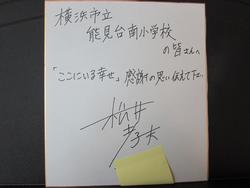 横浜市立
能見台南小学校
の皆さんへ
「ここにいる幸せ」感謝の思い伝えて下さい
松井
孝夫